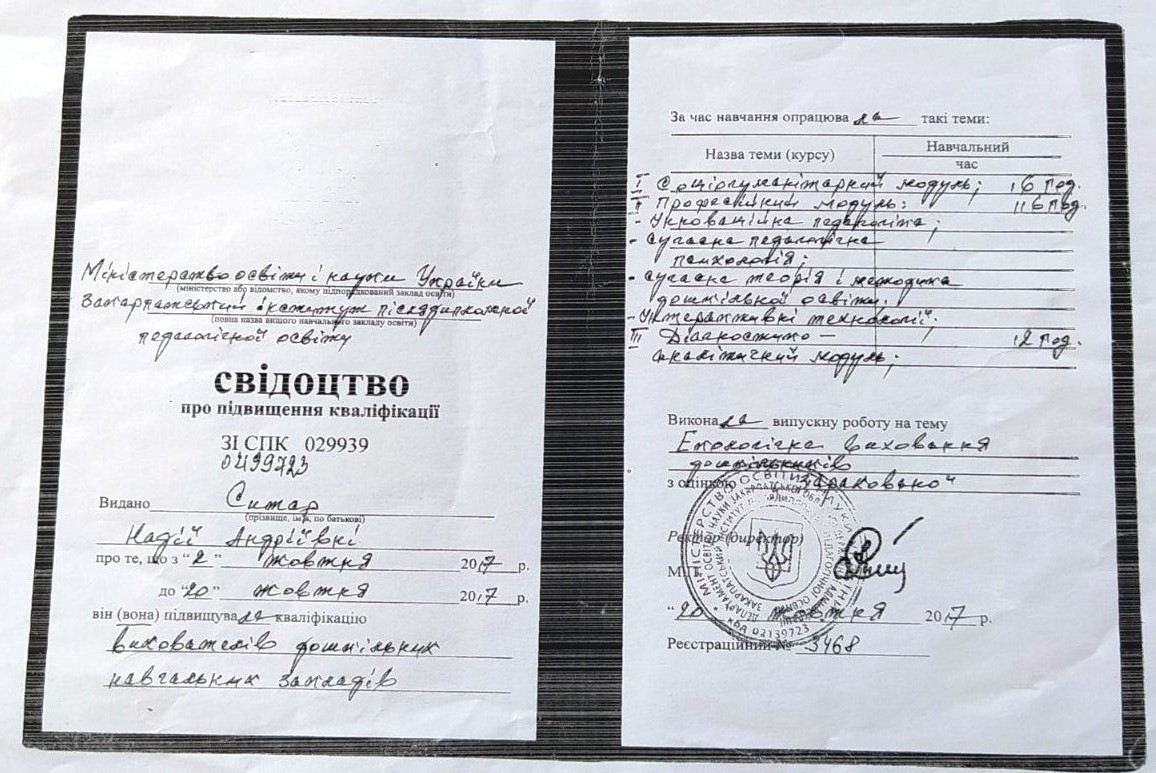 Міністерство освіти і науки України
(міністерство або відомство, якому підпорядкований заклад освіти)
Закарпатський інститут післядипломної
(повна назва вищого навчального закладу освіти)
педагогічної освіти
СВІДОЦТВО
про підвищення кваліфікації
ЗІ СПК 029939
0499723
Видано Ситар
(прізвище, ім'я, по батькові)
Надії Андріївні
про те, що з "2" жовтня 2017 р.
до "20" жовтня 2017 р.
він (вона) підвищувала кваліфікацію
вихователів дошкільних
навчальних закладів
За час навчання опрацювала такі теми:
Назва теми (курсу) Навчальний
час
I Соціогуманітарний модуль; 16 год.
II Професійний модуль: 116 год.
- Інноваційна педагогіка;
- сучасна педагогічна
психологія;
- сучасна теорія і методика
дошкільної освіти.
- Інтерактивні технології;
III Діагностико – 12 год.
аналітичний модуль;
Виконала випускну роботу на тему
Екологічне виховання
дошкільників
з оцінкою "зараховано"
Ректор (директор)
М.П.
"20" жовтня 2017 р.
Реєстраційний № 3468
код 02139723